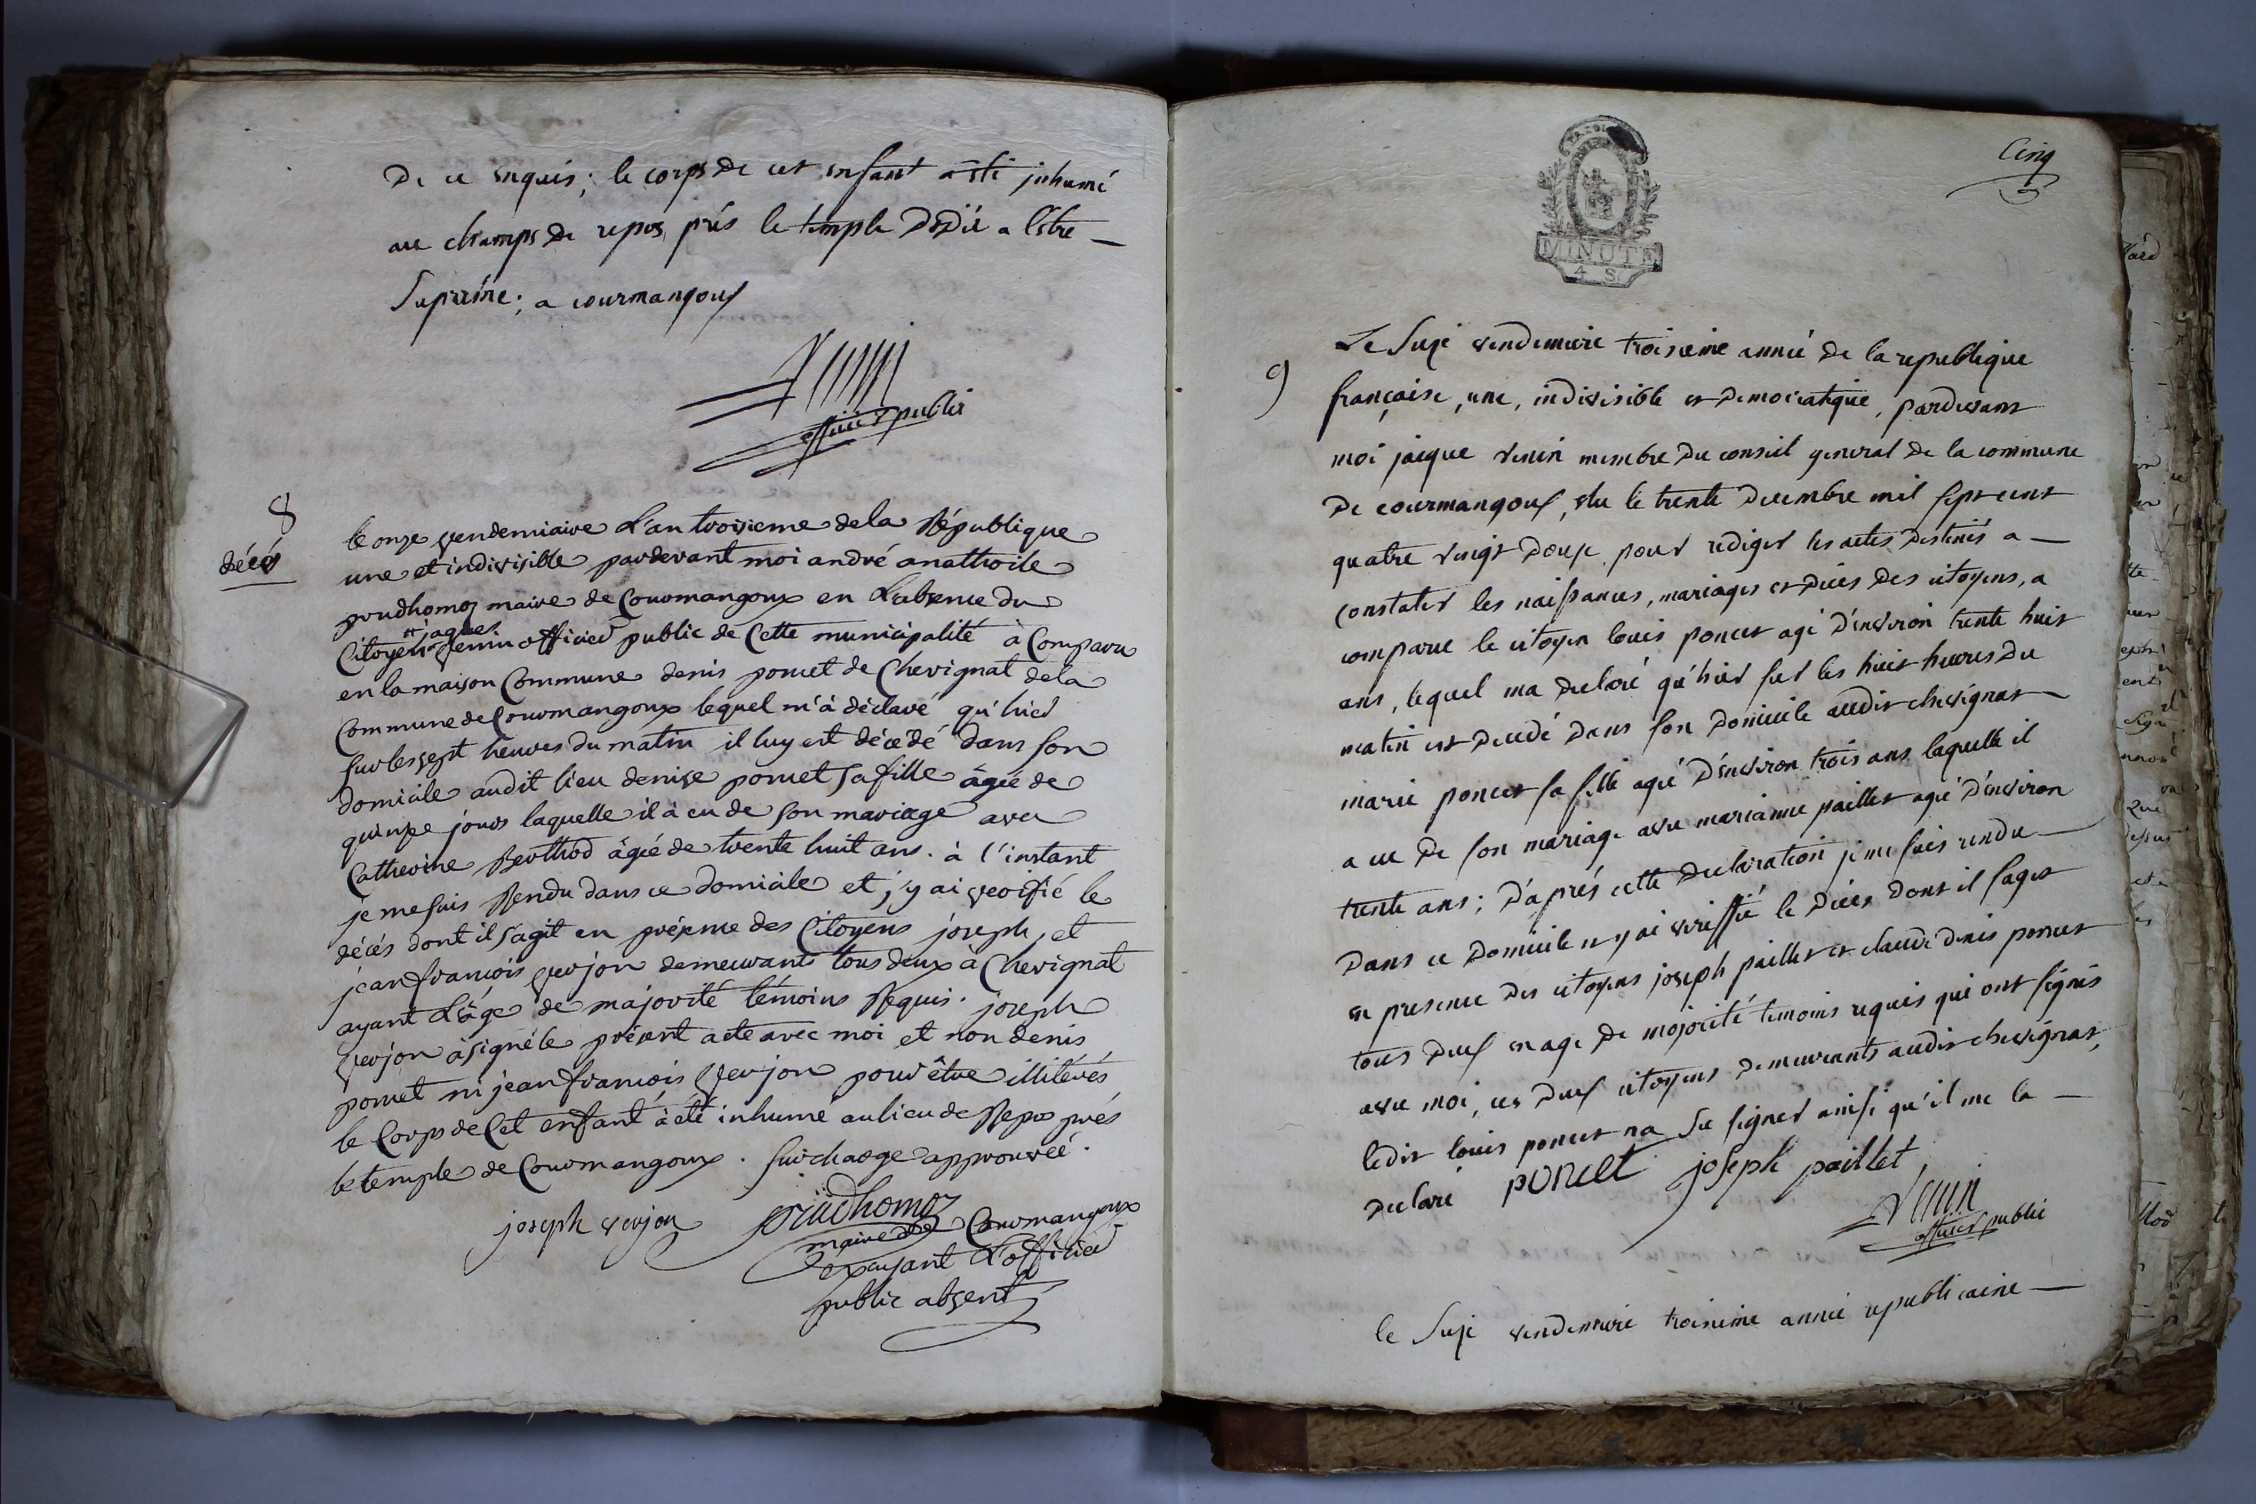 De ce enquis; le corps de cet enfant a été inhumé
au champs de repos, prés le temple dédié a l'être —
Supréme; a courmangoux
Venin
officier public
8
décés
le onze vendemiaire L'an troisieme de la République
une et indivisible pardevant moi andré anathoile
prudhomoz maire de Courmangoux en L'absence du
Citoyen jaques Venin officier public de Cette municipalité à Comparu
en la maison Commune denis poncet de Chevignat de la
Commune de Courmangoux lequel m'à déclaré qu'hier
sur les sept heures du matin il luy est décédé dans son
domicile audit lieu denise poncet sa fille âgée de
quinze jours laquelle il à eu de son mariage avec
Catherine Berthod âgée de trente huit ans. à l'instant
je me suis Rendu dans ce domicile et j'y ai verifié le
décés dont il s'agit en présence des Citoyens joseph, et
jean françois verjon demeurants tous deux à Chevignat
ayant L'âge de majorité témoins Requis. joseph
verjon à signé le présent acte avec moi et non denis
poncet ni jean françois verjon pour être illitérés
le Corps de Cet enfant à été inhumé au lieu de Repos prés
le temple de Courmangoux. surcharge approuvée.
joseph verjon prudhomoz
maire de Courmangoux
exerçant L'officier
public absent
Cinq
MINUTE
4 S.
9
Le Suze vendemiere troisieme année de la republique
française, une, indivisible et Democratique, pardevant
moi jacque venin membre du conseil general de la commune
De courmangoux, élu le trente Decembre mil sept cent
quatre vingt Douze pour rediger les actes Destinés a —
constater les naissances, mariages et Décès Des citoyens, a
comparue le citoyen louis poncet agé D'environ trente huit
ans, lequel ma Declaré qu'hier sur les huit heures Du
matin est Decedé Dans son Domicile audit chevignat —
marie poncet sa fille agée D'environ trois ans laquelle il
a eu De son mariage avec marianne paillet agée D'environ
trente ans; D'aprés cette Declaration je me suis rendu —
Dans ce Domicile ny ai veriffié le Décès Dont il sagit
en presence Des citoyens joseph paillet et claude denis poncet
tous Deux en age De majorité temoins requis qui ont signés
avec moi, ces Deux citoyens Demeurants audit chevignat,
ledit louis poncet na Su signer ainsi qu'il me la —
Declaré poncet joseph paillet
Venin
officier public
le Suze vendemiere troisieme année republicaine —